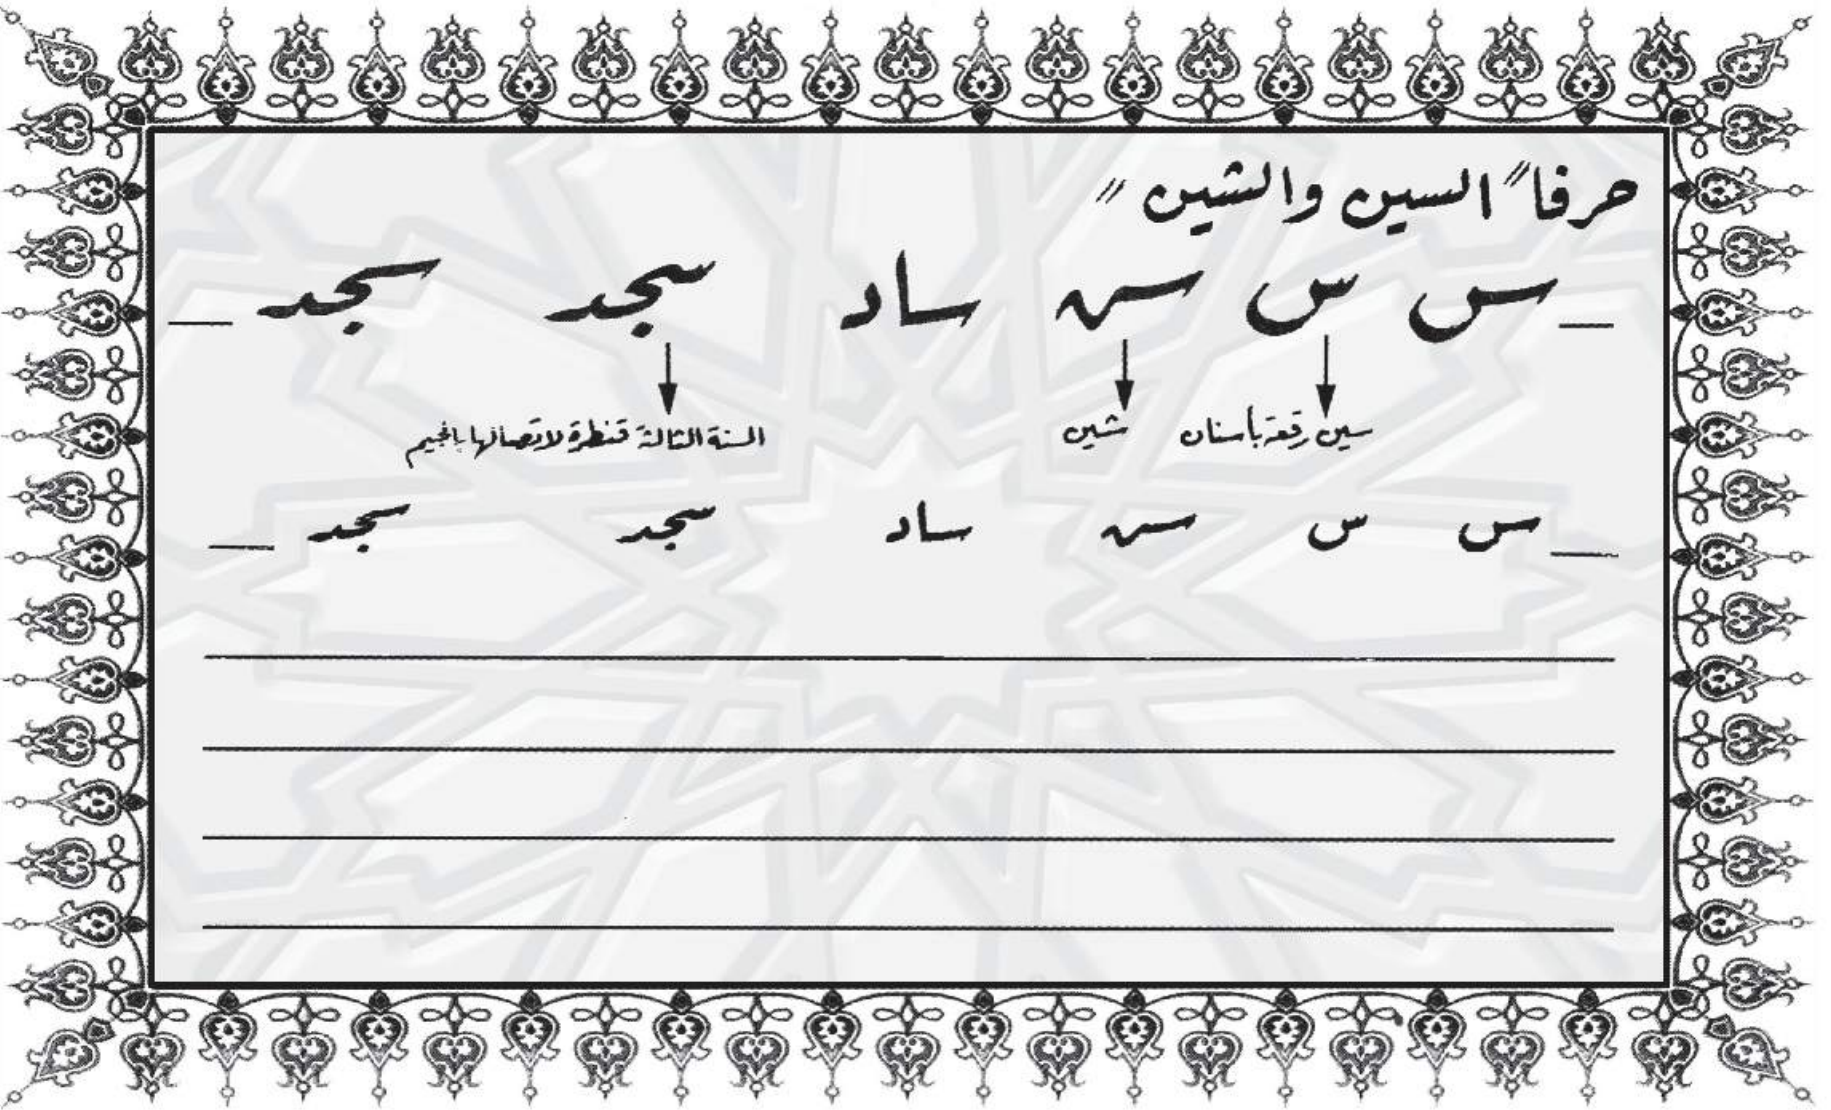 حرفا "السين والشين"
س س س ساد سجد سجد
سين رقعة بأسنان شين السنة الثالثة قنطرة لاتصالها بالجيم
س س س ساد سجد سجد